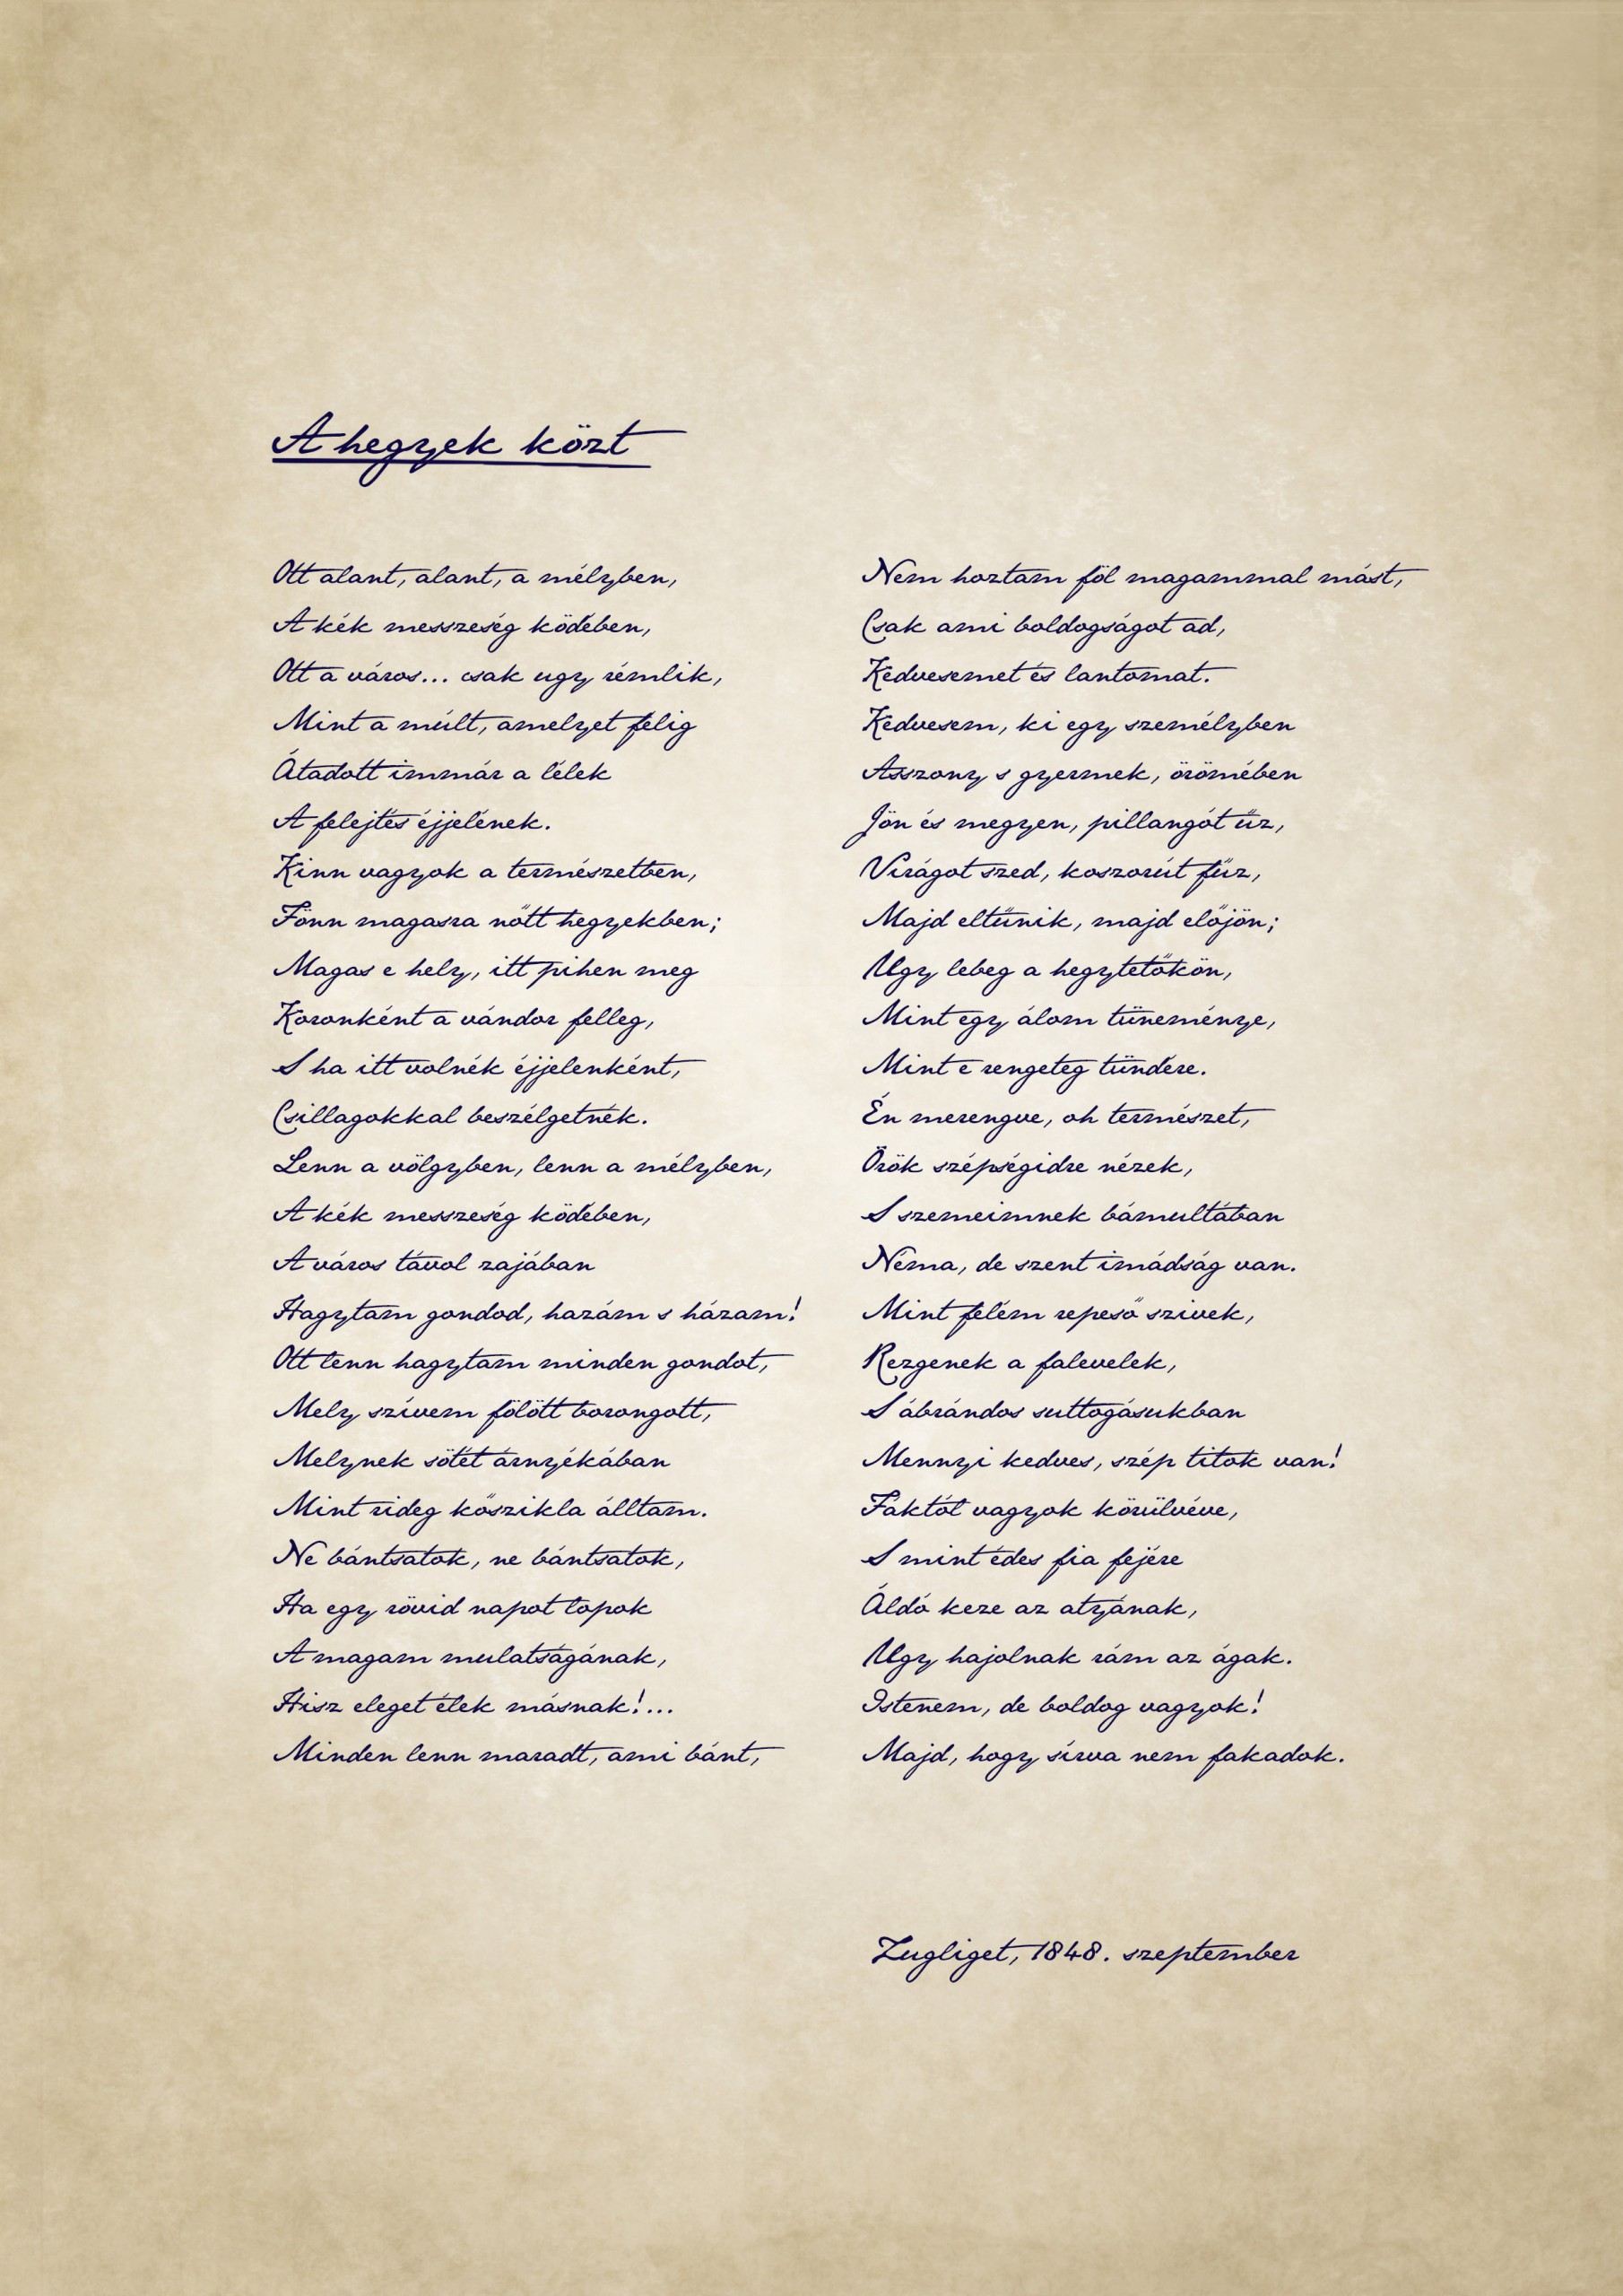 A hegyek közt
Ott alant, alant, a mélyben,
A kék messzeség ködében,
Ott a város... csak ugy rémlik,
Mint a múlt, amelyet félig
Átadott immár a lélek
A felejtés éjjelének.
Kinn vagyok a természetben,
Fönn magasra nőtt hegyekben;
Magas e hely, itt pihen meg
Koronként a vándor felleg,
S ha itt volnék éjjelenként,
Csillagokkal beszélgetnék.
Lenn a völgyben, lenn a mélyben,
A kék messzeség ködében,
A város távol zajában
Hagytam gondod, hazám s házam!
Ott lenn hagytam minden gondot,
Mely szívem fölött borongott,
Melynek sötét árnyékában
Mint rideg kőszikla álltam.
Ne bántsatok, ne bántsatok,
Ha egy rövid napot lopok
A magam mulatságának,
Hisz eleget élek másnak!...
Minden lenn maradt, ami bánt,
Nem hoztam föl magammal mást,
Csak ami boldogságot ad,
Kedvesemet és lantomat.
Kedvesem, ki egy személyben
Asszony s gyermek, örömében
Jön és megyen, pillangót űz,
Virágot szed, koszorút fűz,
Majd eltűnik, majd előjön;
Ugy lebeg a hegytetőkön,
Mint egy álom tüneménye,
Mint e rengeteg tündére.
Én merengve, oh természet,
Örök szépségidre nézek,
S szemeimnek bámultában
Néma, de szent imádság van.
Mint felém repeső szivek,
Rezgenek a falevelek,
S ábrándos suttogásukban
Mennyi kedves, szép titok van!
Fáktól vagyok körülvéve,
S mint édes fia fejére
Áldó keze az atyának,
Ugy hajolnak rám az ágak.
Istenem, de boldog vagyok!
Majd, hogy sírva nem fakadok.
Zugliget, 1848. szeptember